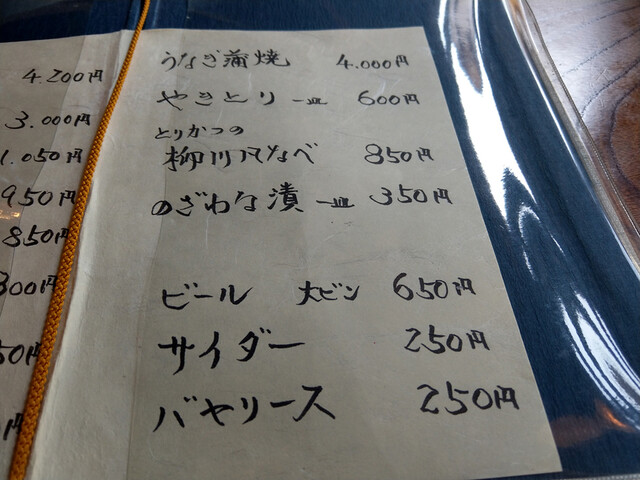 うなぎ蒲焼 4.000円
やきとり 一皿 600円
とりかつの
柳川風なべ 850円
のざわな漬 一皿 350円
ビール 大ビン 650円
サイダー 250円
バヤリース 250円
4.200円
3.000円
1.050円
950円
850円